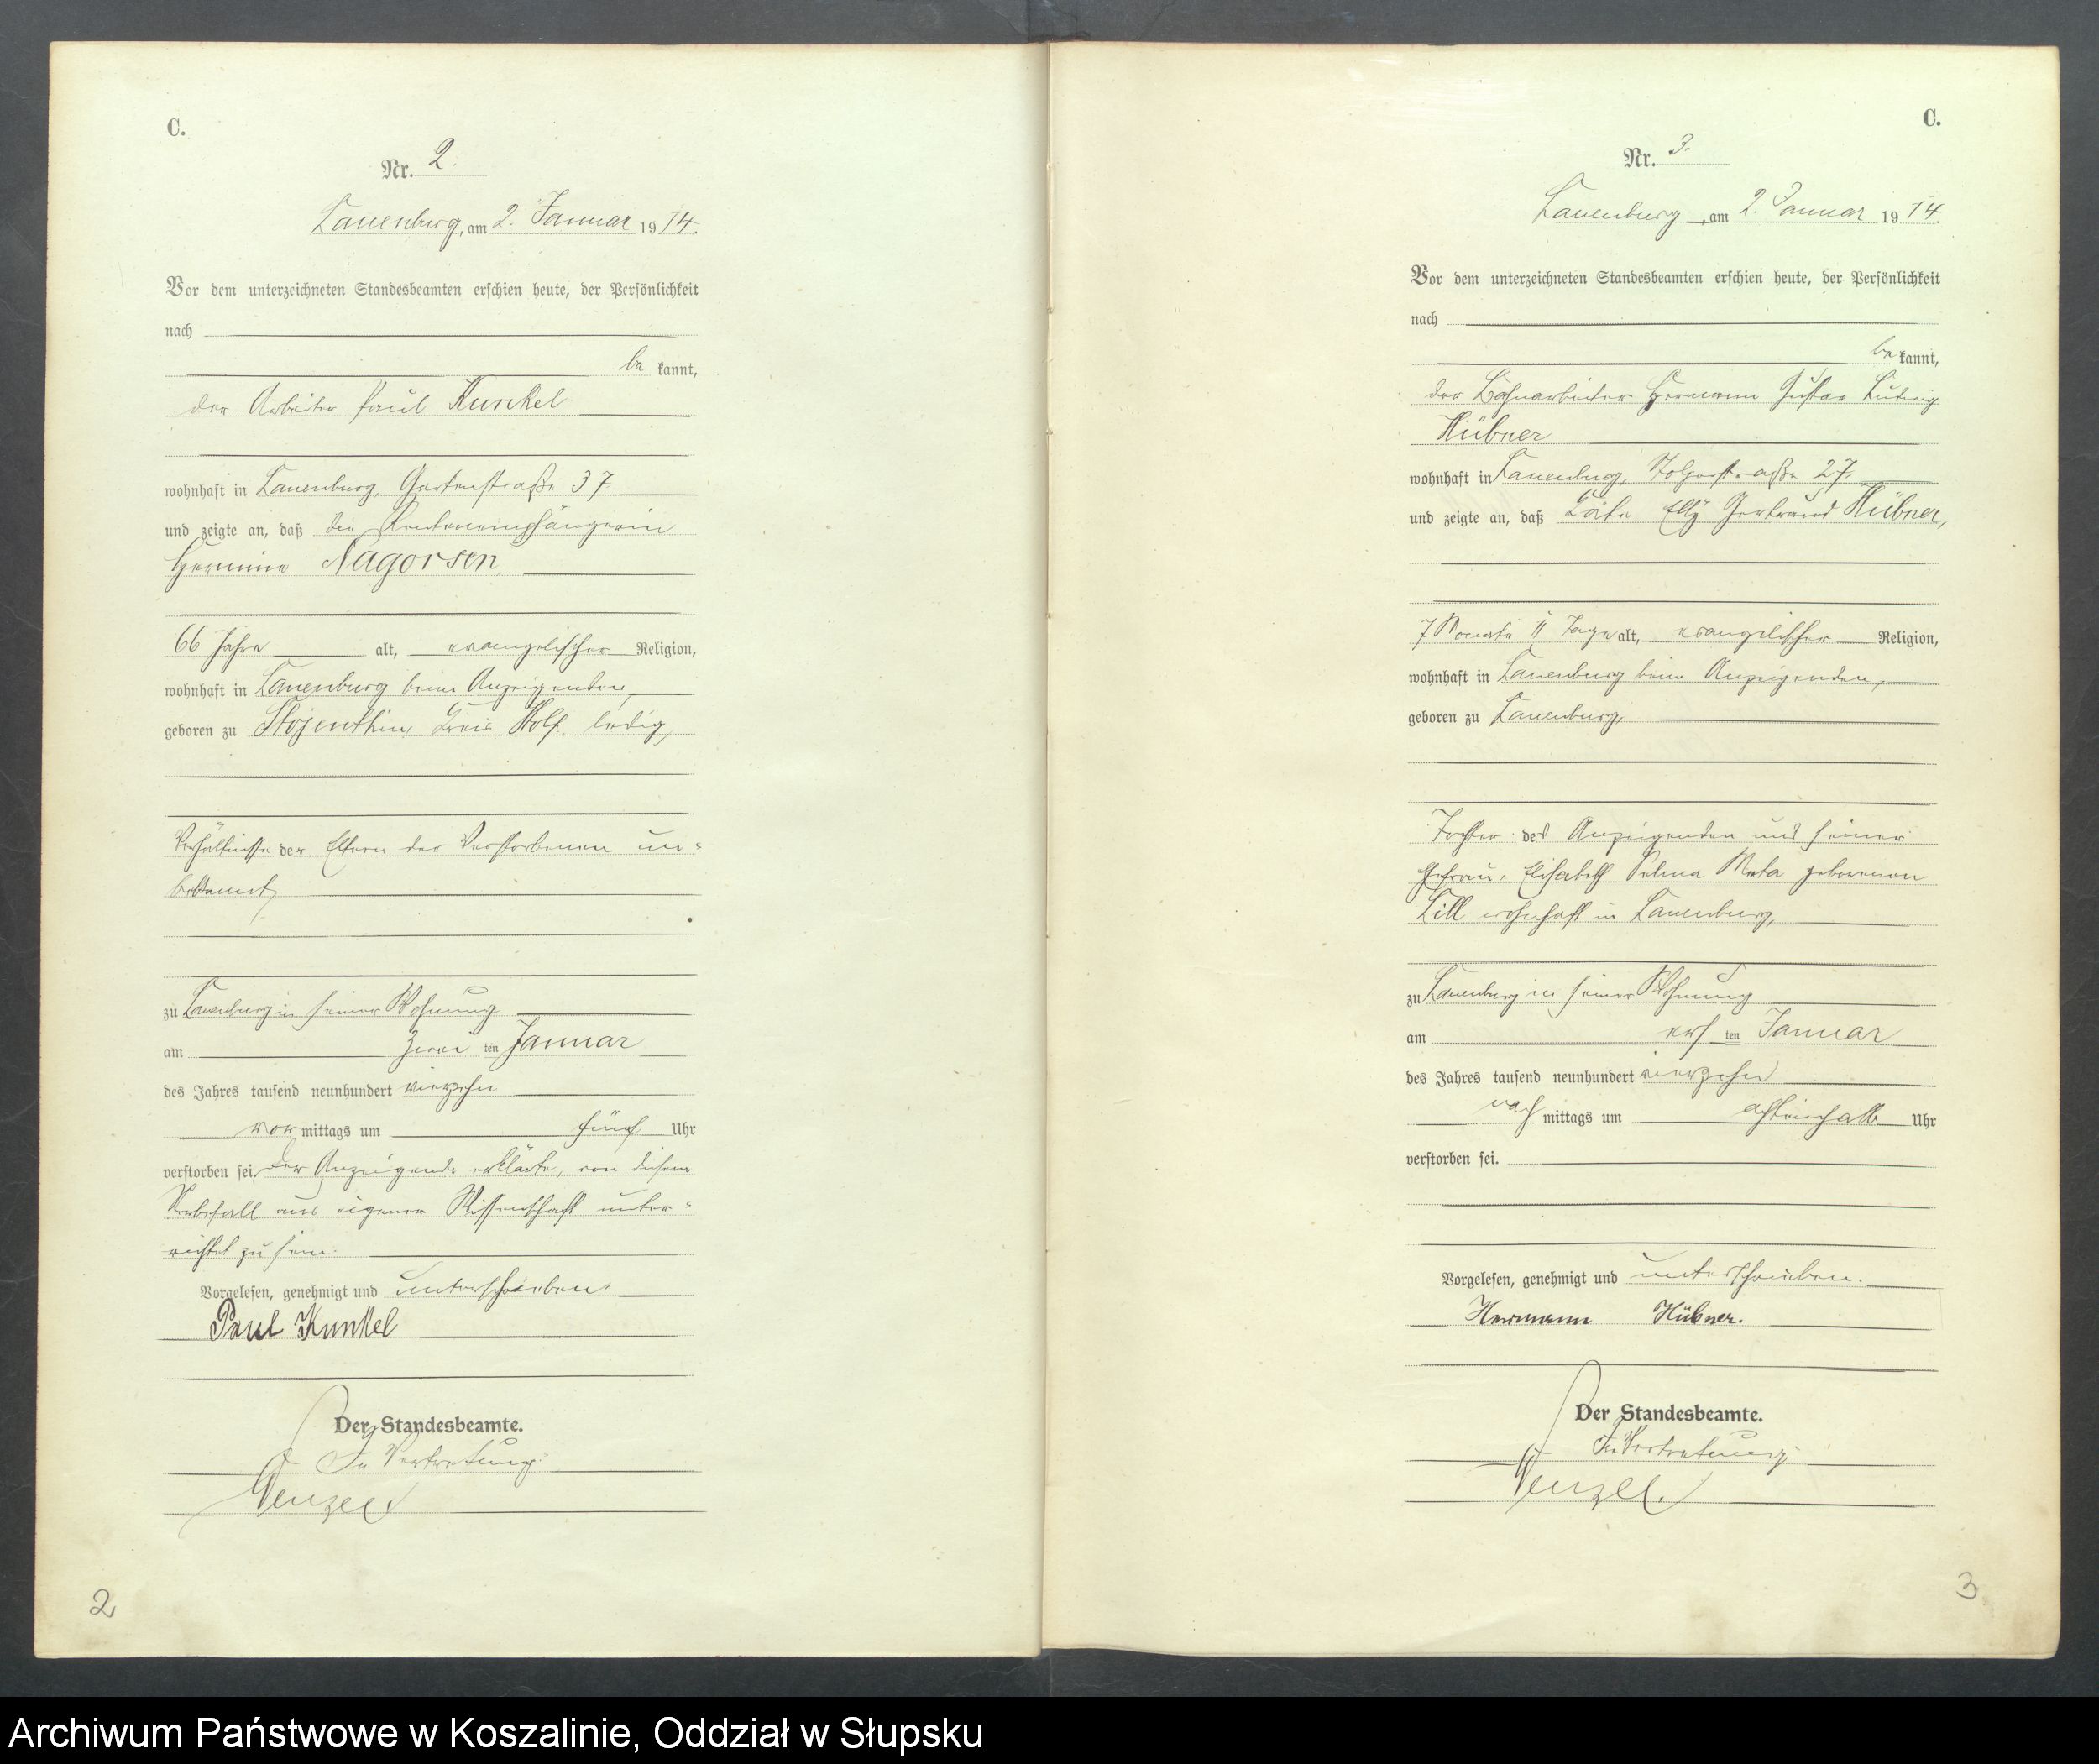 C.
Nr. 2.
Lauenburg, am 2. Januar 1914.
Vor dem unterzeichneten Standesbeamten erschien heute, der Persönlichkeit
nach
be kannt,
der Arbeiter Paul Kunkel
wohnhaft in Lauenburg, Gartenstraße 37
und zeigte an, daß die Rentenempfängerin
Hermine Nagorsen,
66 Jahre alt, evangelischer Religion,
wohnhaft in Lauenburg beim Anzeigenden,
geboren zu Stojenthin, Kreis Stolp, ledig,
Verhältnisse der Eltern der Verstorbenen un-
bekannt,
zu Lauenburg in seiner Wohnung
am zwei ten Januar
des Jahres tausend neunhundert vierzehn
vor mittags um fünf Uhr
verstorben sei. Der Anzeigende erklärte, von diesem
Sterbefall aus eigener Wissenschaft unter-
richtet zu sein.
Vorgelesen, genehmigt und unterschrieben.
Paul Kunkel
Der Standesbeamte.
In Vertretung.
Wenzel
2
C.
Nr. 3.
Lauenburg, am 2. Januar 1914.
Vor dem unterzeichneten Standesbeamten erschien heute, der Persönlichkeit
nach
be kannt,
der Bahnarbeiter Hermann Gustav Ludwig
Hübner
wohnhaft in Lauenburg, Stolperstraße 27.
und zeigte an, daß Käte Elly Gertrud Hübner,
7 Monate 11 Tage alt, evangelischer Religion,
wohnhaft in Lauenburg beim Anzeigenden,
geboren zu Lauenburg,
Tochter des Anzeigenden und seiner
Ehefrau, Elisabeth Selma Meta geborenen
Lill wohnhaft in Lauenburg,
zu Lauenburg in seiner Wohnung
am ers ten Januar
des Jahres tausend neunhundert vierzehn
nach mittags um achteinhalb Uhr
verstorben sei.
Vorgelesen, genehmigt und unterschrieben.
Hermann Hübner.
Der Standesbeamte.
In Vertretung.
Wenzel.
3
Archiwum Państwowe w Koszalinie, Oddział w Słupsku